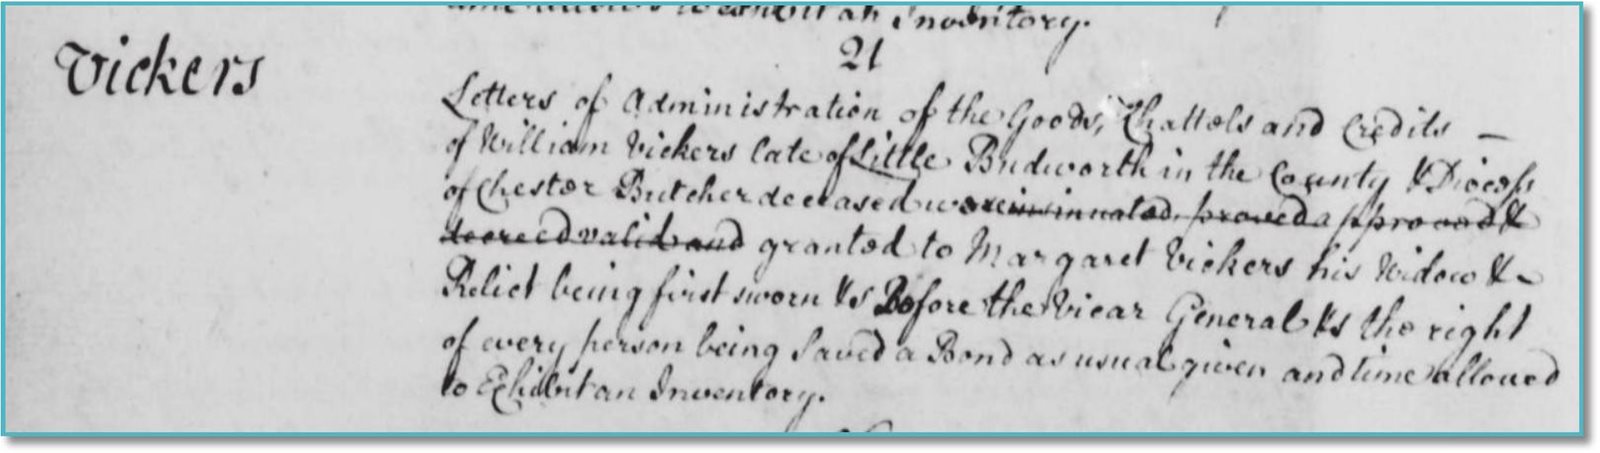 an Inventory.
21
Vickers
Letters of Administration of the Goods, Chattels and Credits —
of William Vickers late of Little Budworth in the County & Diocess
of Chester Butcher deceased were insinuated, proved approved &
decreed valid and granted to Margaret Vickers his Widow &
Relict being first sworn &s Before the Vicar General &s the right
of every person being Saved a Bond as usual given and time allowed
to Exhibit an Inventory.